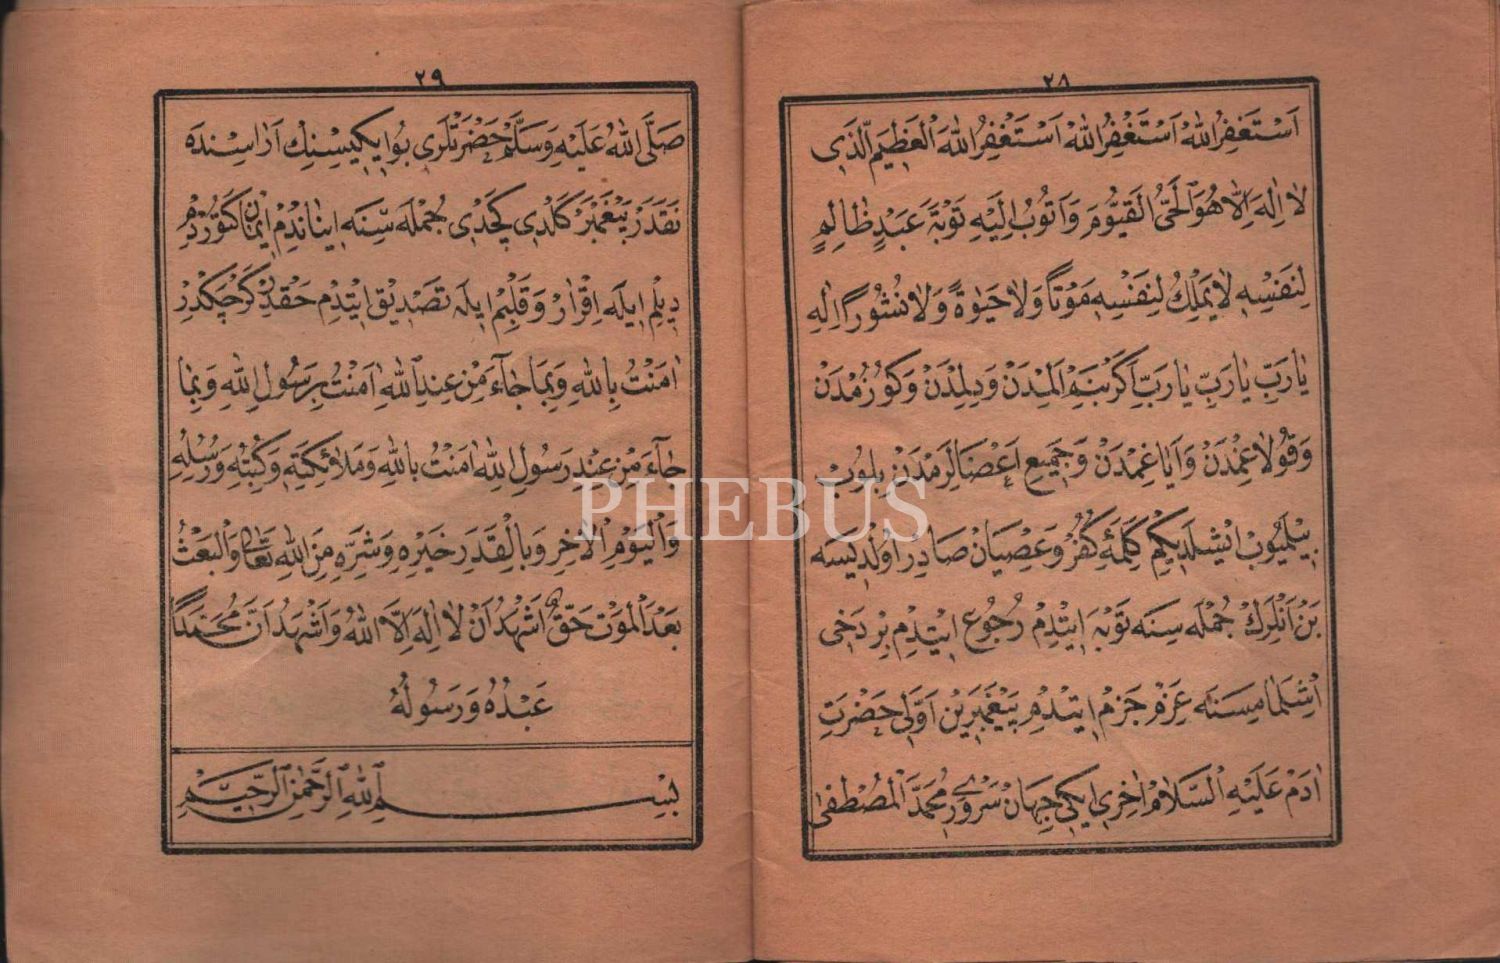 ٢٨
اَسْتَغْفِرُ اللّٰهَ اَسْتَغْفِرُ اللّٰهَ اَسْتَغْفِرُ اللّٰهَ الْعَظِيمَ الَّذِي
لَا اِلٰهَ اِلَّا هُوَ الْحَيُّ الْقَيُّومَ وَاَتُوبُ اِلَيْهِ تَوْبَةَ عَبْدٍ ظَالِمٍ
لِنَفْسِهِ لَا يَمْلِكُ لِنَفْسِهِ مَوْتًا وَلَا حَيٰوةً وَلَا نُشُورًا اِلٰهِ
يَارَبِّ يَارَبِّ يَارَبِّ اَكَرْ بَنِمْ اَلِمْدَنْ وَدِلِمْدَنْ وَكُوزُمْدَنْ
وَقُولَاغِمْدَنْ وَاَيَاغِمْدَنْ وَجَمِيعِ اَعْضَالَرِمْدَنْ بِلُوبْ
بِيْلْمَيُوبْ اِيْشْلَدِيكِمْ كَلِمَۀِ كُفْرْ وَعِصْيَانْ صَادِرْ اُولْدِيسَه
بَنْ اَنْلَرِكْ جُمْلَه سِنَه تَوْبَه اِيتْدِمْ رُجُوعْ اِيتْدِمْ بِرْ دَخِي
اِشْلَمَامَسِنَه عَزْمْ جَزْمْ اِيتْدِمْ پَيْغَمْبَرِينْ اَوَّلِي حَضْرَتِ
اٰدَمْ عَلَيْهِ السَّلَامْ اٰخِرِي اِيكِي جِهَانْ سَرْوَرِي مُحَمَّدَ الْمُصْطَفٰى
٢٩
صَلَّى اللّٰهُ عَلَيْهِ وَسَلَّمْ حَضْرَتْلَرِي بُو اِيكِيسِنِكْ اَرَاسِنْدَه
نَقَدَرْ پَيْغَمْبَرْ كَلْدِي كَچْدِي جُمْلَه سِنَه اِينَانْدِمْ اِيمَانْ كَتُورْدِمْ
دِيلِمْ اِيلَه اِقْرَارْ وَقَلْبِمْ اِيلَه تَصْدِيقْ اِيتْدِمْ حَقْدِرْ كَرْچَكْدِرْ
اٰمَنْتُ بِاللّٰهِ وَبِمَا جَٓاءَ مِنْ عِنْدِ اللّٰهِ اٰمَنْتُ بِرَسُولِ اللّٰهِ وَبِمَا
جَٓاءَ مِنْ عِنْدِ رَسُولِ اللّٰهِ اٰمَنْتُ بِاللّٰهِ وَمَلٰٓائِكَتِهِ وَكُتُبِهِ وَرُسُلِهِ
وَالْيَوْمِ الْاٰخِرِ وَبِالْقَدَرِ خَيْرِهِ وَشَرِّهِ مِنَ اللّٰهِ تَعَالٰى وَالْبَعْثُ
بَعْدَ الْمَوْتِ حَقٌّ اَشْهَدُ اَنْ لَا اِلٰهَ اِلَّا اللّٰهُ وَاَشْهَدُ اَنَّ مُحَمَّدًا
عَبْدُهُ وَرَسُولُهُ
بِسْمِ اللّٰهِ الرَّحْمٰنِ الرَّحِيمِ
PHEBUS